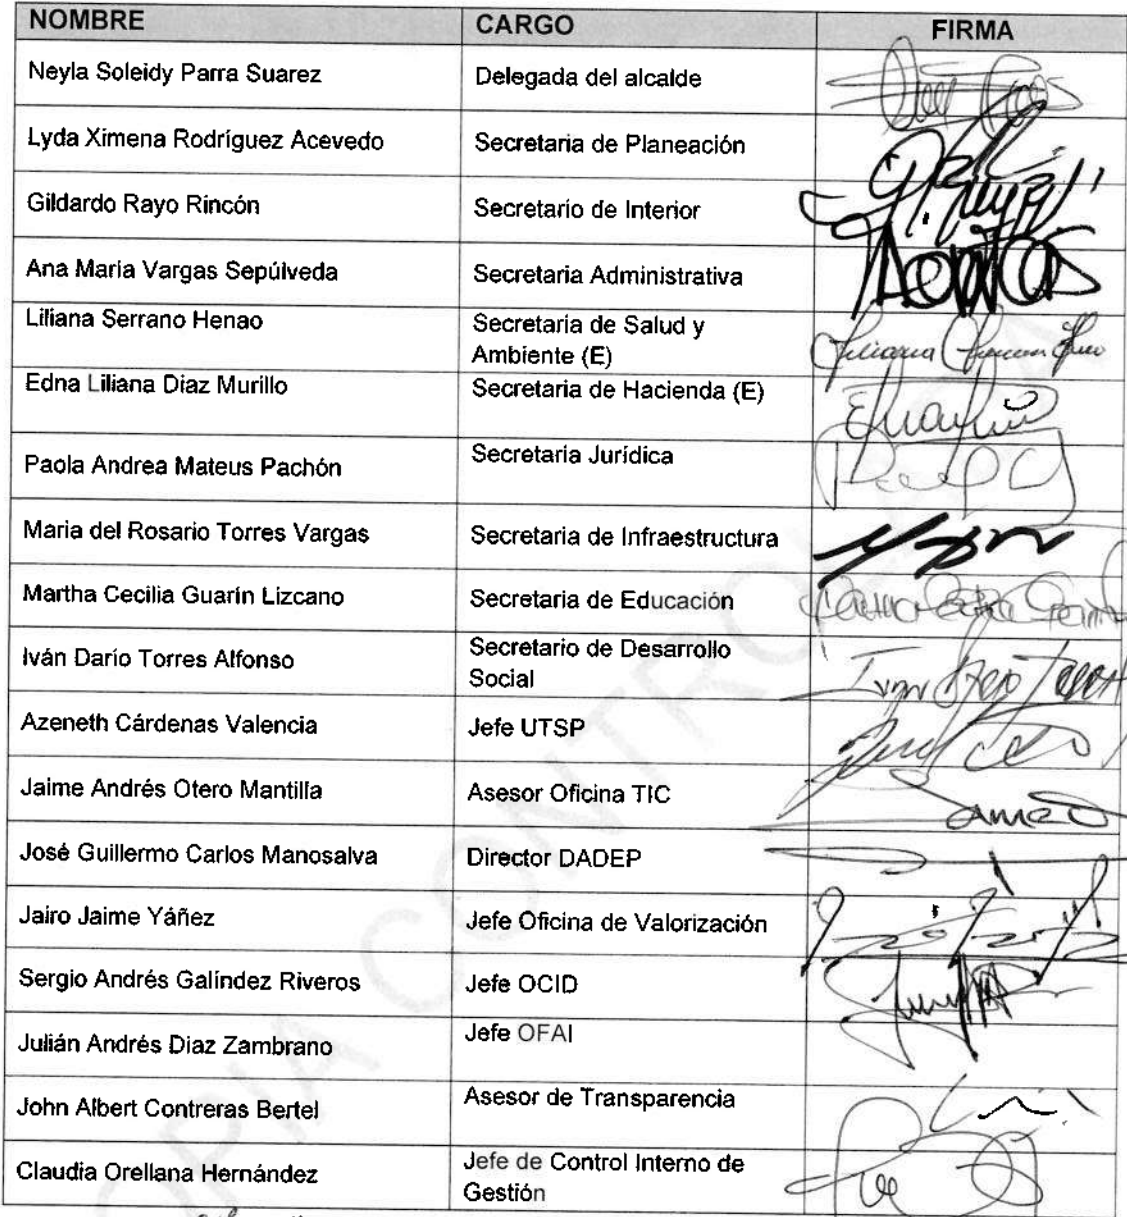 NOMBRE CARGO FIRMA
Neyla Soleidy Parra Suarez Delegada del alcalde
Lyda Ximena Rodríguez Acevedo Secretaria de Planeación
Gildardo Rayo Rincón Secretario de Interior
Ana Maria Vargas Sepúlveda Secretaria Administrativa
Liliana Serrano Henao Secretaria de Salud y
Ambiente (E)
Edna Liliana Díaz Murillo Secretaria de Hacienda (E)
Paola Andrea Mateus Pachón Secretaria Jurídica
Maria del Rosario Torres Vargas Secretaria de Infraestructura
Martha Cecilia Guarín Lizcano Secretaria de Educación
Iván Darío Torres Alfonso Secretario de Desarrollo
Social
Azeneth Cárdenas Valencia Jefe UTSP
Jaime Andrés Otero Mantilla Asesor Oficina TIC
José Guillermo Carlos Manosalva Director DADEP
Jairo Jaime Yáñez Jefe Oficina de Valorización
Sergio Andrés Galíndez Riveros Jefe OCID
Julián Andrés Diaz Zambrano Jefe OFAI
John Albert Contreras Bertel Asesor de Transparencia
Claudia Orellana Hernández Jefe de Control Interno de
Gestión